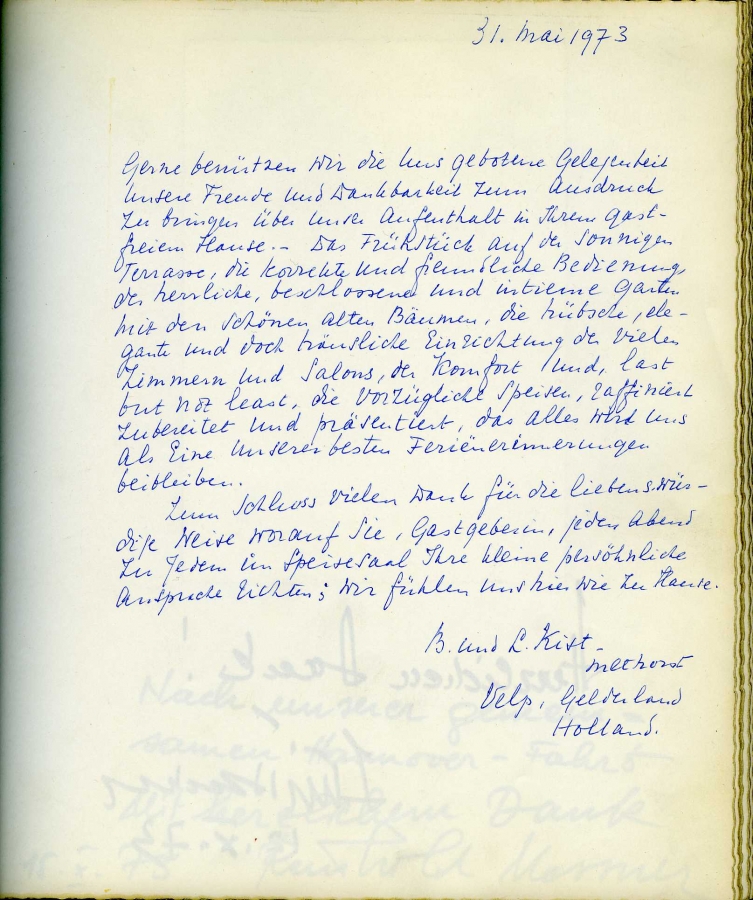 31. Mai 1973
Gerne benützen wir die uns gebotene Gelegenheit
unsere Freude und Dankbarkeit zum Ausdruck
zu bringen über unser Aufenthalt in Ihrem gast-
freiem Hause. – Das Frühstück auf der sonnigen
Terrasse, die korrekte und freundliche Bedienung,
der herrliche, beschlossene und intieme Garten
mit den schönen alten Bäumen, die hübsche, ele-
gante und doch häusliche Einrichtung der vielen
Zimmern und Salons, der Komfort und, last
but not least, die vorzügliche Speisen, raffiniert
zubereitet und präsentiert, das alles wird uns
als Eine unserer besten Ferienerinnerungen
beibleiben.
Zum Schluss vielen Dank für die liebenswür-
dige Weise worauf Sie, Gastgeberin, jeden Abend
zu jedem im Speisesaal Ihre kleine persöhnliche
Ansprache richten; wir fühlen uns hier wie zu Hause.
B. und L. Kist-
methorst
Velp, Gelderland
Holland.
Herzlichen Dank!
Nach unserer
samen Hannover-Fahrt
Dank